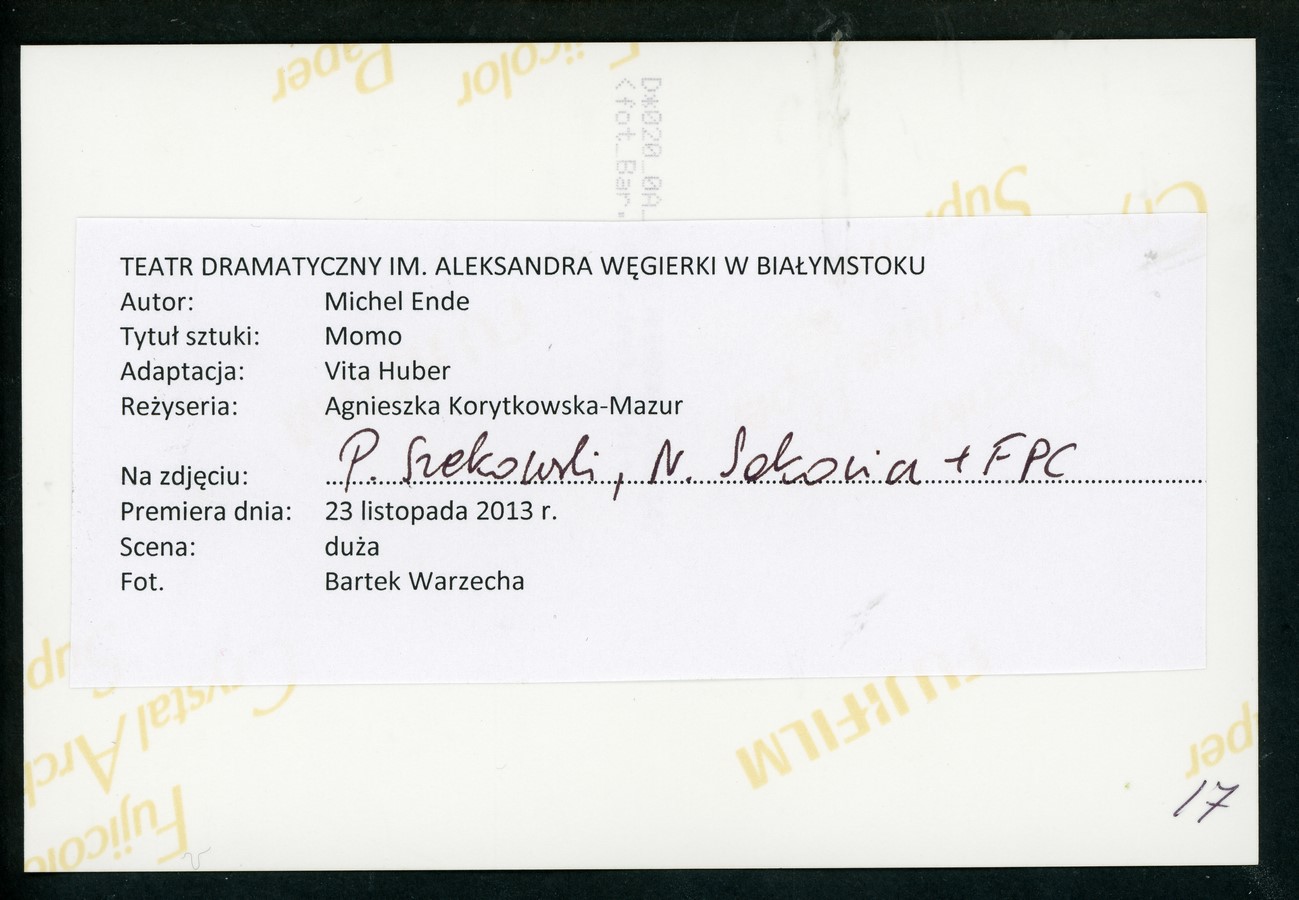 Paper
Fujicolor
D*020_0A_
<fot_Bar.
TEATR DRAMATYCZNY IM. ALEKSANDRA WĘGIERKI W BIAŁYMSTOKU
Autor: Michel Ende
Tytuł sztuki: Momo
Adaptacja: Vita Huber
Reżyseria: Agnieszka Korytkowska-Mazur
Na zdjęciu: P. Szekowski, N. Sokovia + FPC
Premiera dnia: 23 listopada 2013 r.
Scena: duża
Fot. Bartek Warzecha
Crystal Arch
FUJIFILM
Fujicolo
17